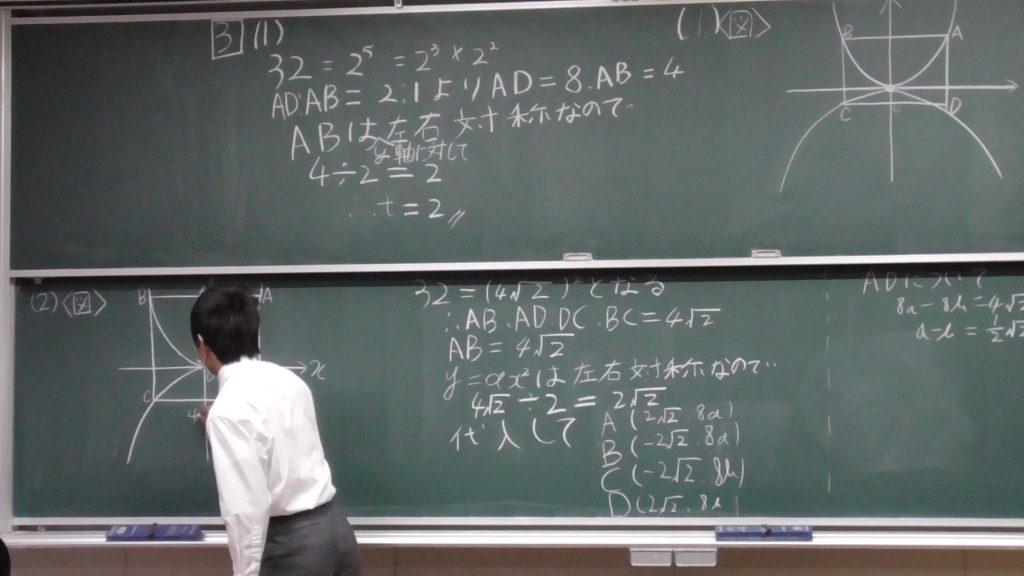 3 (1)
32 = 2⁵ = 2³ × 2²
AD:AB = 2:1 より AD = 8. AB = 4
ABは左右対称なので…
y軸に対して
4÷2 = 2
∴t = 2
(1)<図>
B
A
C
D
(2)<図>
B
A
x
C
32 = (4√2)²となる
∴AB.AD.DC.BC = 4√2
AB = 4√2
y = ax²は左右対称なので…
4√2 ÷ 2 = 2√2
代入して
A(2√2. 8a)
B(-2√2. 8a)
C(-2√2. 8b)
D(2√2. 8b
ADについて
8a-8b = 4√2
a-b = ½√2